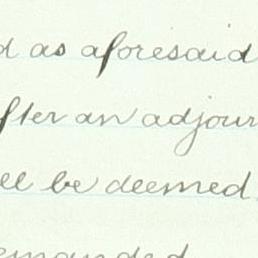 d as aforesaid
after an adjour
ll be deemed
emanded